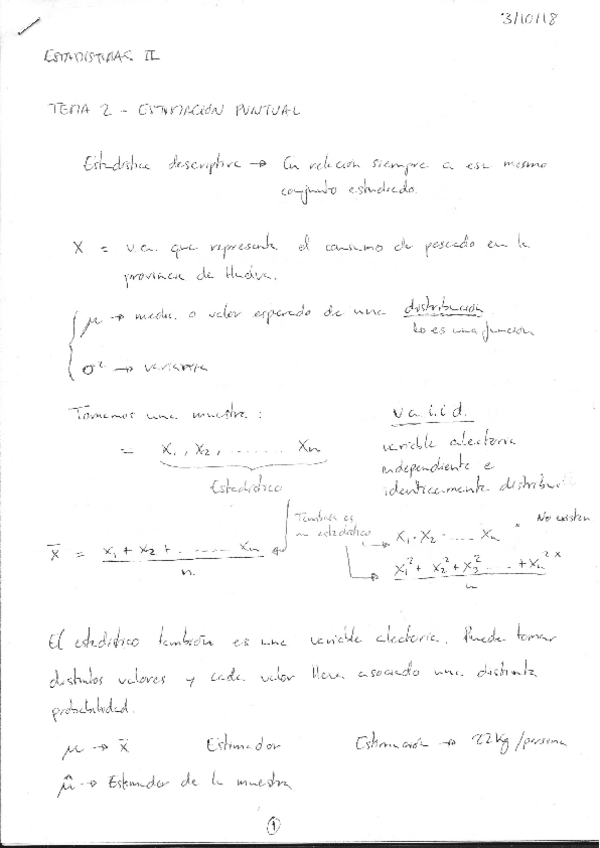 3/10/18
ESTADÍSTICAS II
TEMA 2 - ESTIMACIÓN PUNTUAL
Estadística descriptiva → En relación siempre a ese mismo
conjunto estudiado.
X = v.a. que representa el consumo de pescado en la
provincia de Huelva.
μ → media o valor esperado de una distribución
Lo es una función
σ² → varianza
Tomamos una muestra:
= X₁, X₂, ........ Xn
Estadístico
v a i.i.d.
variable aleatoria
independiente e
identicamente distribui
También es
un estadístico
X₁ · X₂ ..... Xn * No existen
x̄ = X₁ + X₂ + ...... Xn / n
X₁² + X₂² + X₃² .... + Xn² * / n
El estadístico también es una variable aleatoria. Puede tomar
distintos valores y cada valor lleva asociado una distinta
probabilidad.
μ → x̄ Estimador Estimación → 22 Kg/persona
μ̂ → Estimador de la muestra
1